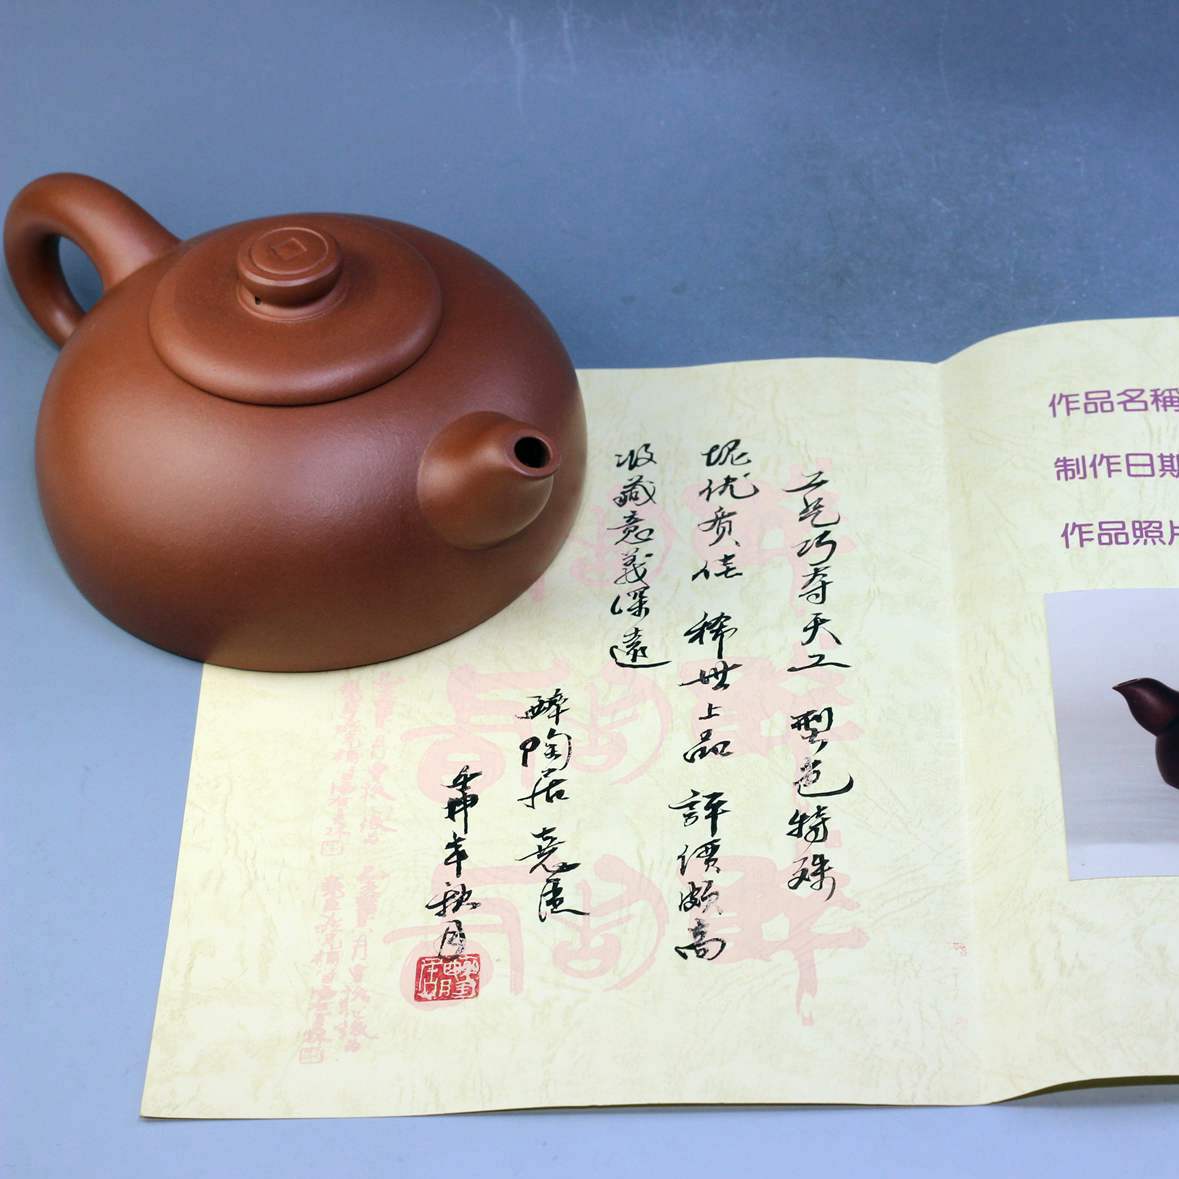 作品名稱
制作日期
作品照片
工艺巧夺天工 型色特殊
坭优质佳 稀世上品 評價颇高
收藏意義深遠
醉陶居
壬申年秋月